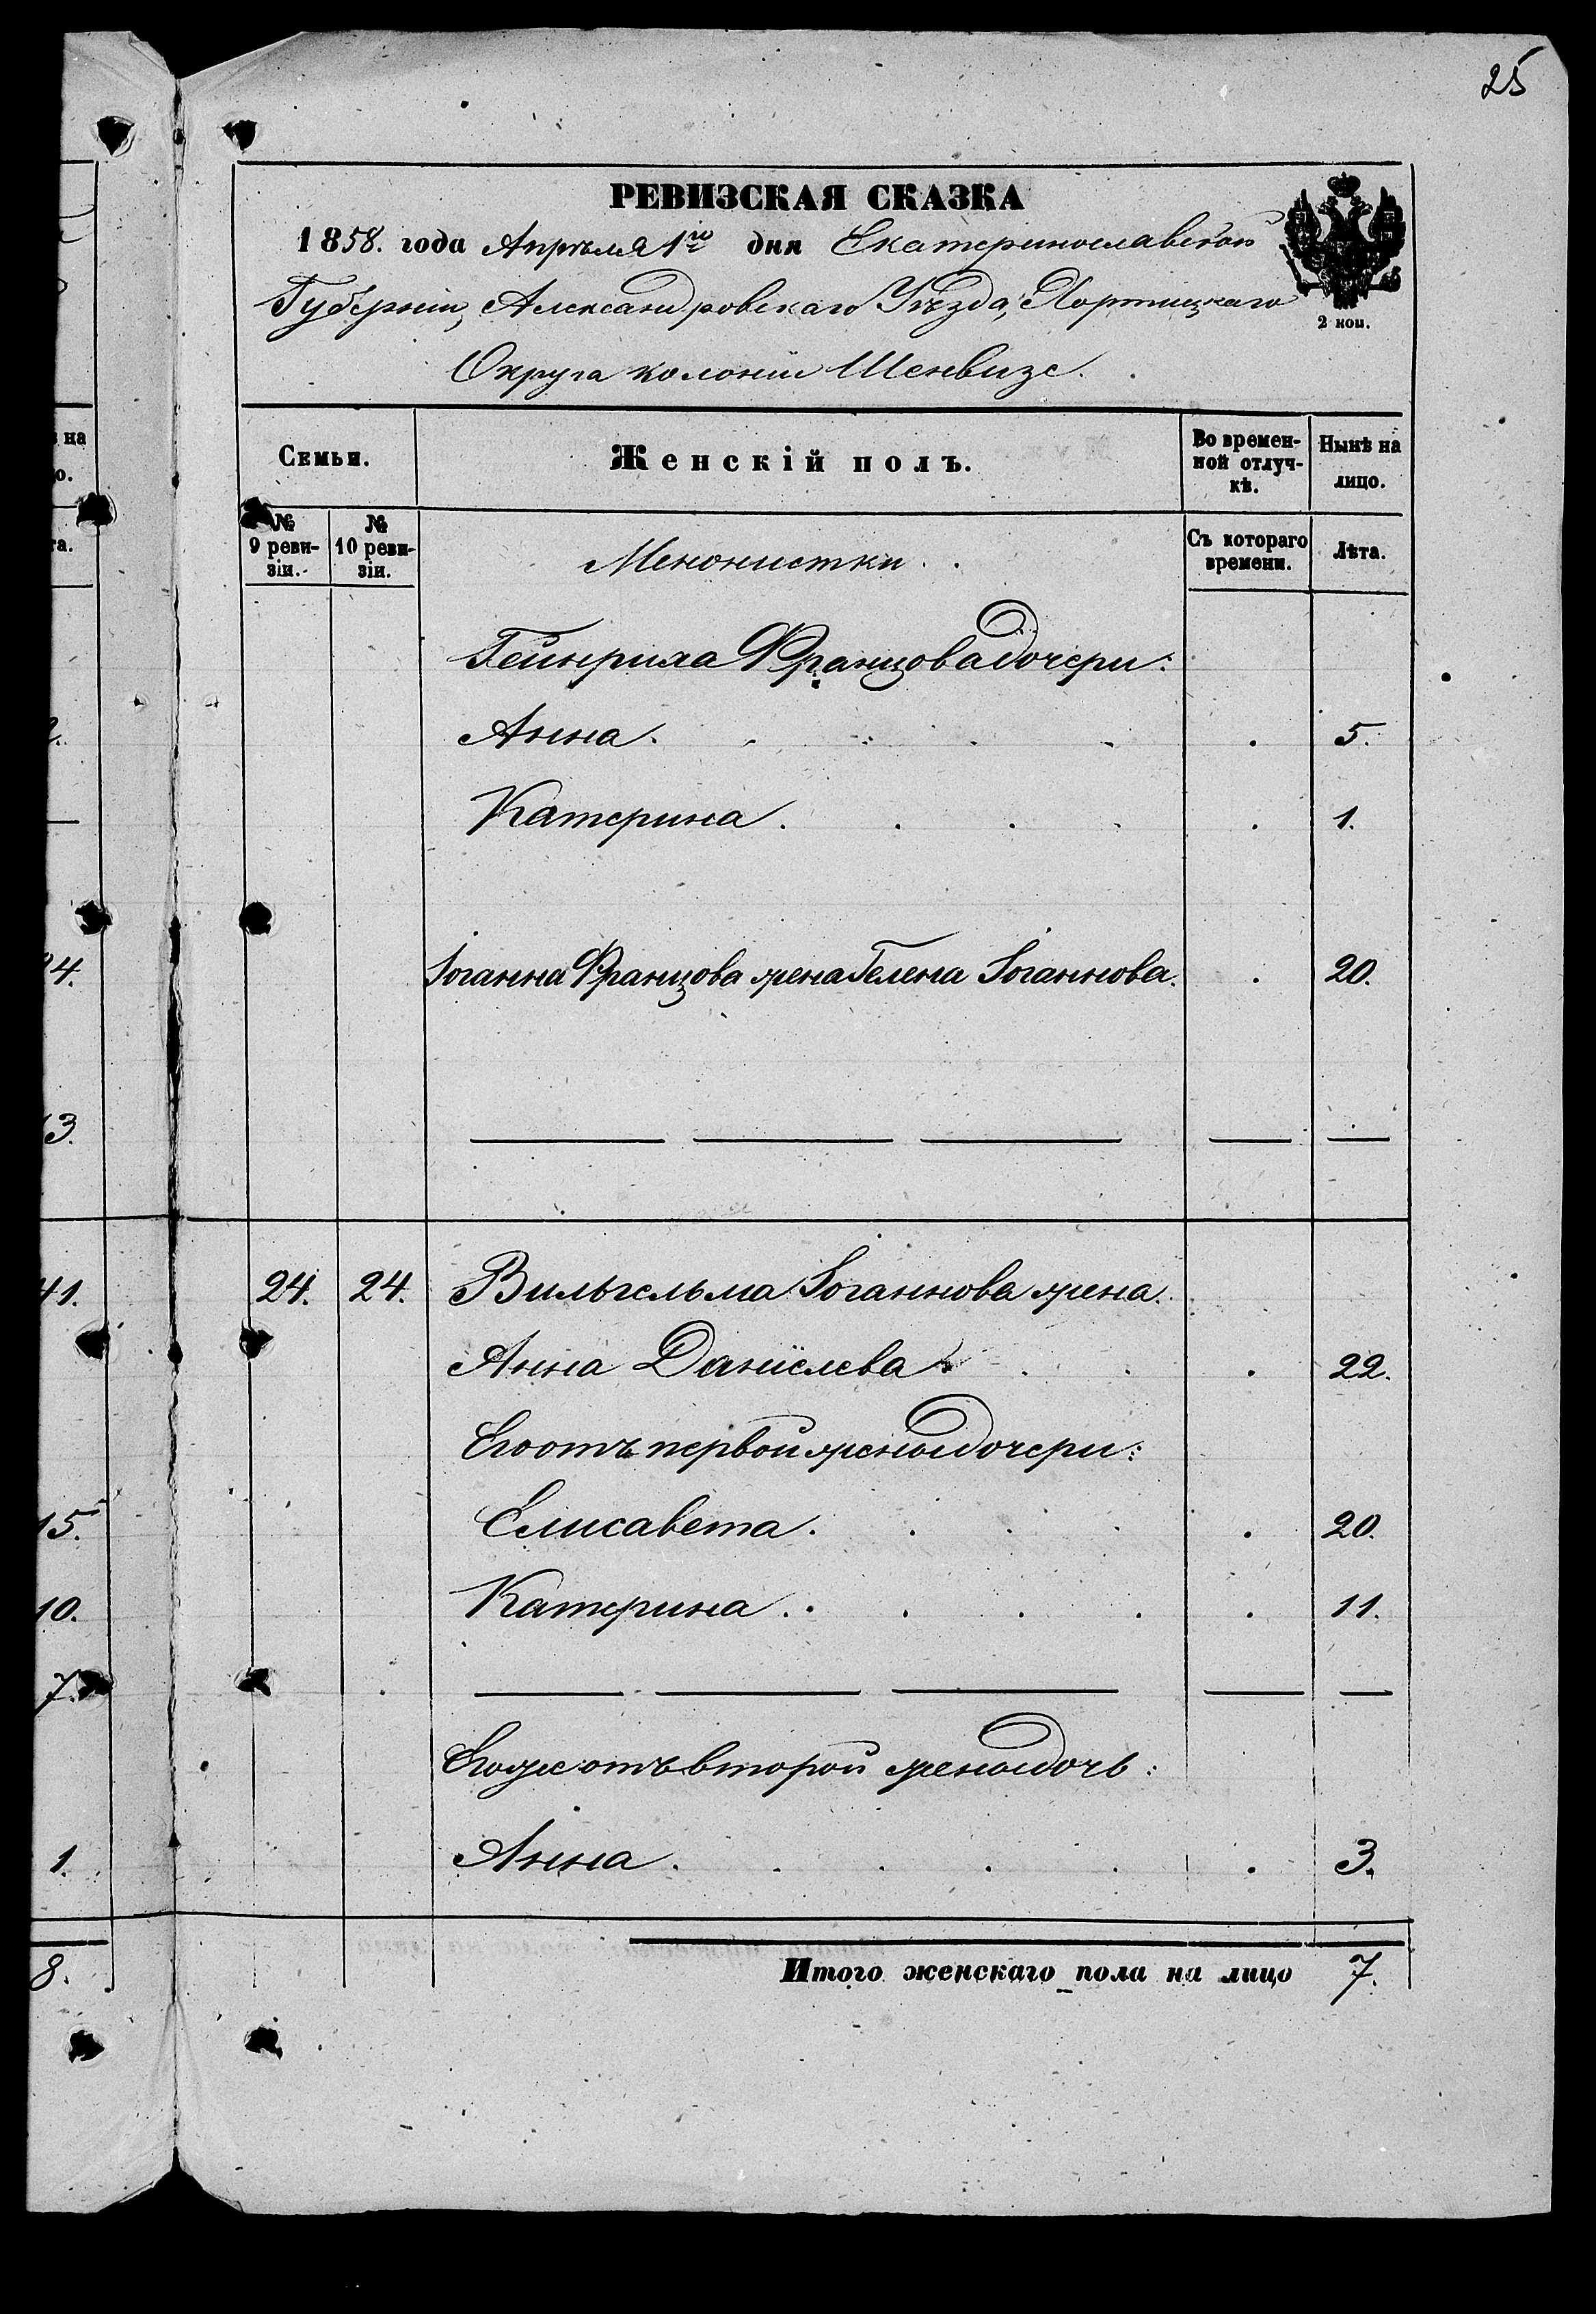 25
РЕВИЗСКАЯ СКАЗКА
1858. года Апрѣля 1го дня Екатеринославской
Губерніи, Александровскаго Уѣзда, Хортицкаго
2 коп.
Округа колоніи Шенвизе.
на
о.
Семьи.
Женскій полъ.
Во времен-
ной отлуч-
кѣ.
Нынѣ на
лицо.
та.
№
9 реви-
зіи.
№
10 реви-
зіи.
Менонистки.
Съ котораго
времени.
Лѣта.
Гейнриха Францова дочери:
Анна. 5.
Катерина. 1.
4.
Іоганна Францова жена Гелена Іоганнова. 20.
13.
41.
24. 24. Вильгельма Іоганнова жена
Анна Даніелева 22.
Его отъ первой жены дочери:
15.
Елисавета. 20.
10.
Катерина. 11.
7.
Его же отъ второй жены дочь:
1.
Анна. 3.
8.
Итого женскаго пола на лицо 7.